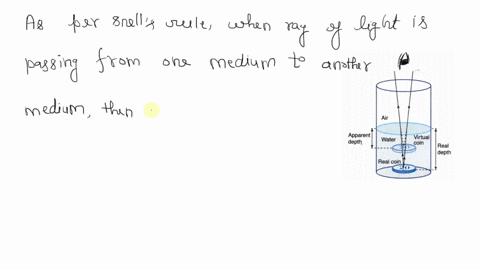 As per snell's rule, when ray of light is
passing from one medium to another
medium, then
Air
Apparent
depth
Water
Virtual
coin
Real
depth
Real coin